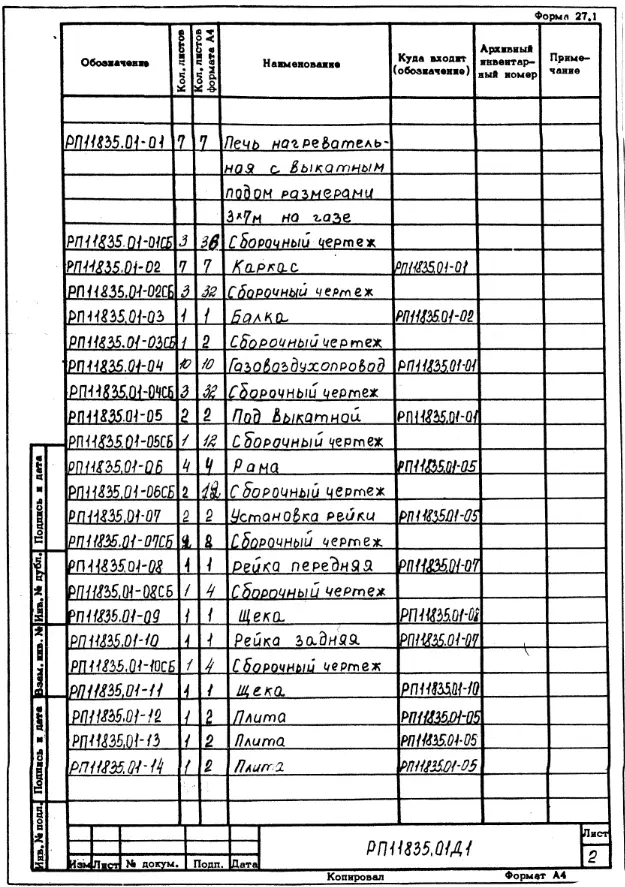 Форма 27.1
Обозначение Кол. листов Кол. листов формата А4 Наименование Куда входит (обозначение) Архивный инвентарный номер Примечание
РП11835.01-01 7 7 Печь нагреватель-
ная с выкатным
подом размерами
3×7м на газе
РП11835.01-01СБ 3 36 Сборочный чертеж
РП11835.01-02 7 7 Каркас РП11835.01-01
РП11835.01-02СБ 3 32 Сборочный чертеж
РП11835.01-03 1 1 Балка РП11835.01-02
РП11835.01-03СБ 1 2 Сборочный чертеж
РП11835.01-04 10 10 Газовоздухопровод РП11835.01-01
РП11835.01-04СБ 3 32 Сборочный чертеж
РП11835.01-05 2 2 Под выкатной РП11835.01-01
РП11835.01-05СБ 1 12 Сборочный чертеж
РП11835.01-06 4 4 Рама РП11835.01-05
РП11835.01-06СБ 2 12 Сборочный чертеж
РП11835.01-07 2 2 Установка рейки РП11835.01-05
РП11835.01-07СБ 2 8 Сборочный чертеж
РП11835.01-08 1 1 Рейка передняя РП11835.01-07
РП11835.01-08СБ 1 4 Сборочный чертеж
РП11835.01-09 1 1 Щека РП11835.01-08
РП11835.01-10 1 1 Рейка задняя РП11835.01-07
РП11835.01-10СБ 1 4 Сборочный чертеж
РП11835.01-11 1 1 Щека РП11835.01-10
РП11835.01-12 1 2 Плита РП11835.01-05
РП11835.01-13 1 2 Плита РП11835.01-05
РП11835.01-14 1 2 Плита РП11835.01-05
Инв. № подл. Подпись и дата Взам. инв. № Инв. № дубл. Подпись и дата
Изм Лист № докум. Подп. Дата
РП11835.01Д1
Лист
2
Копировал Формат А4